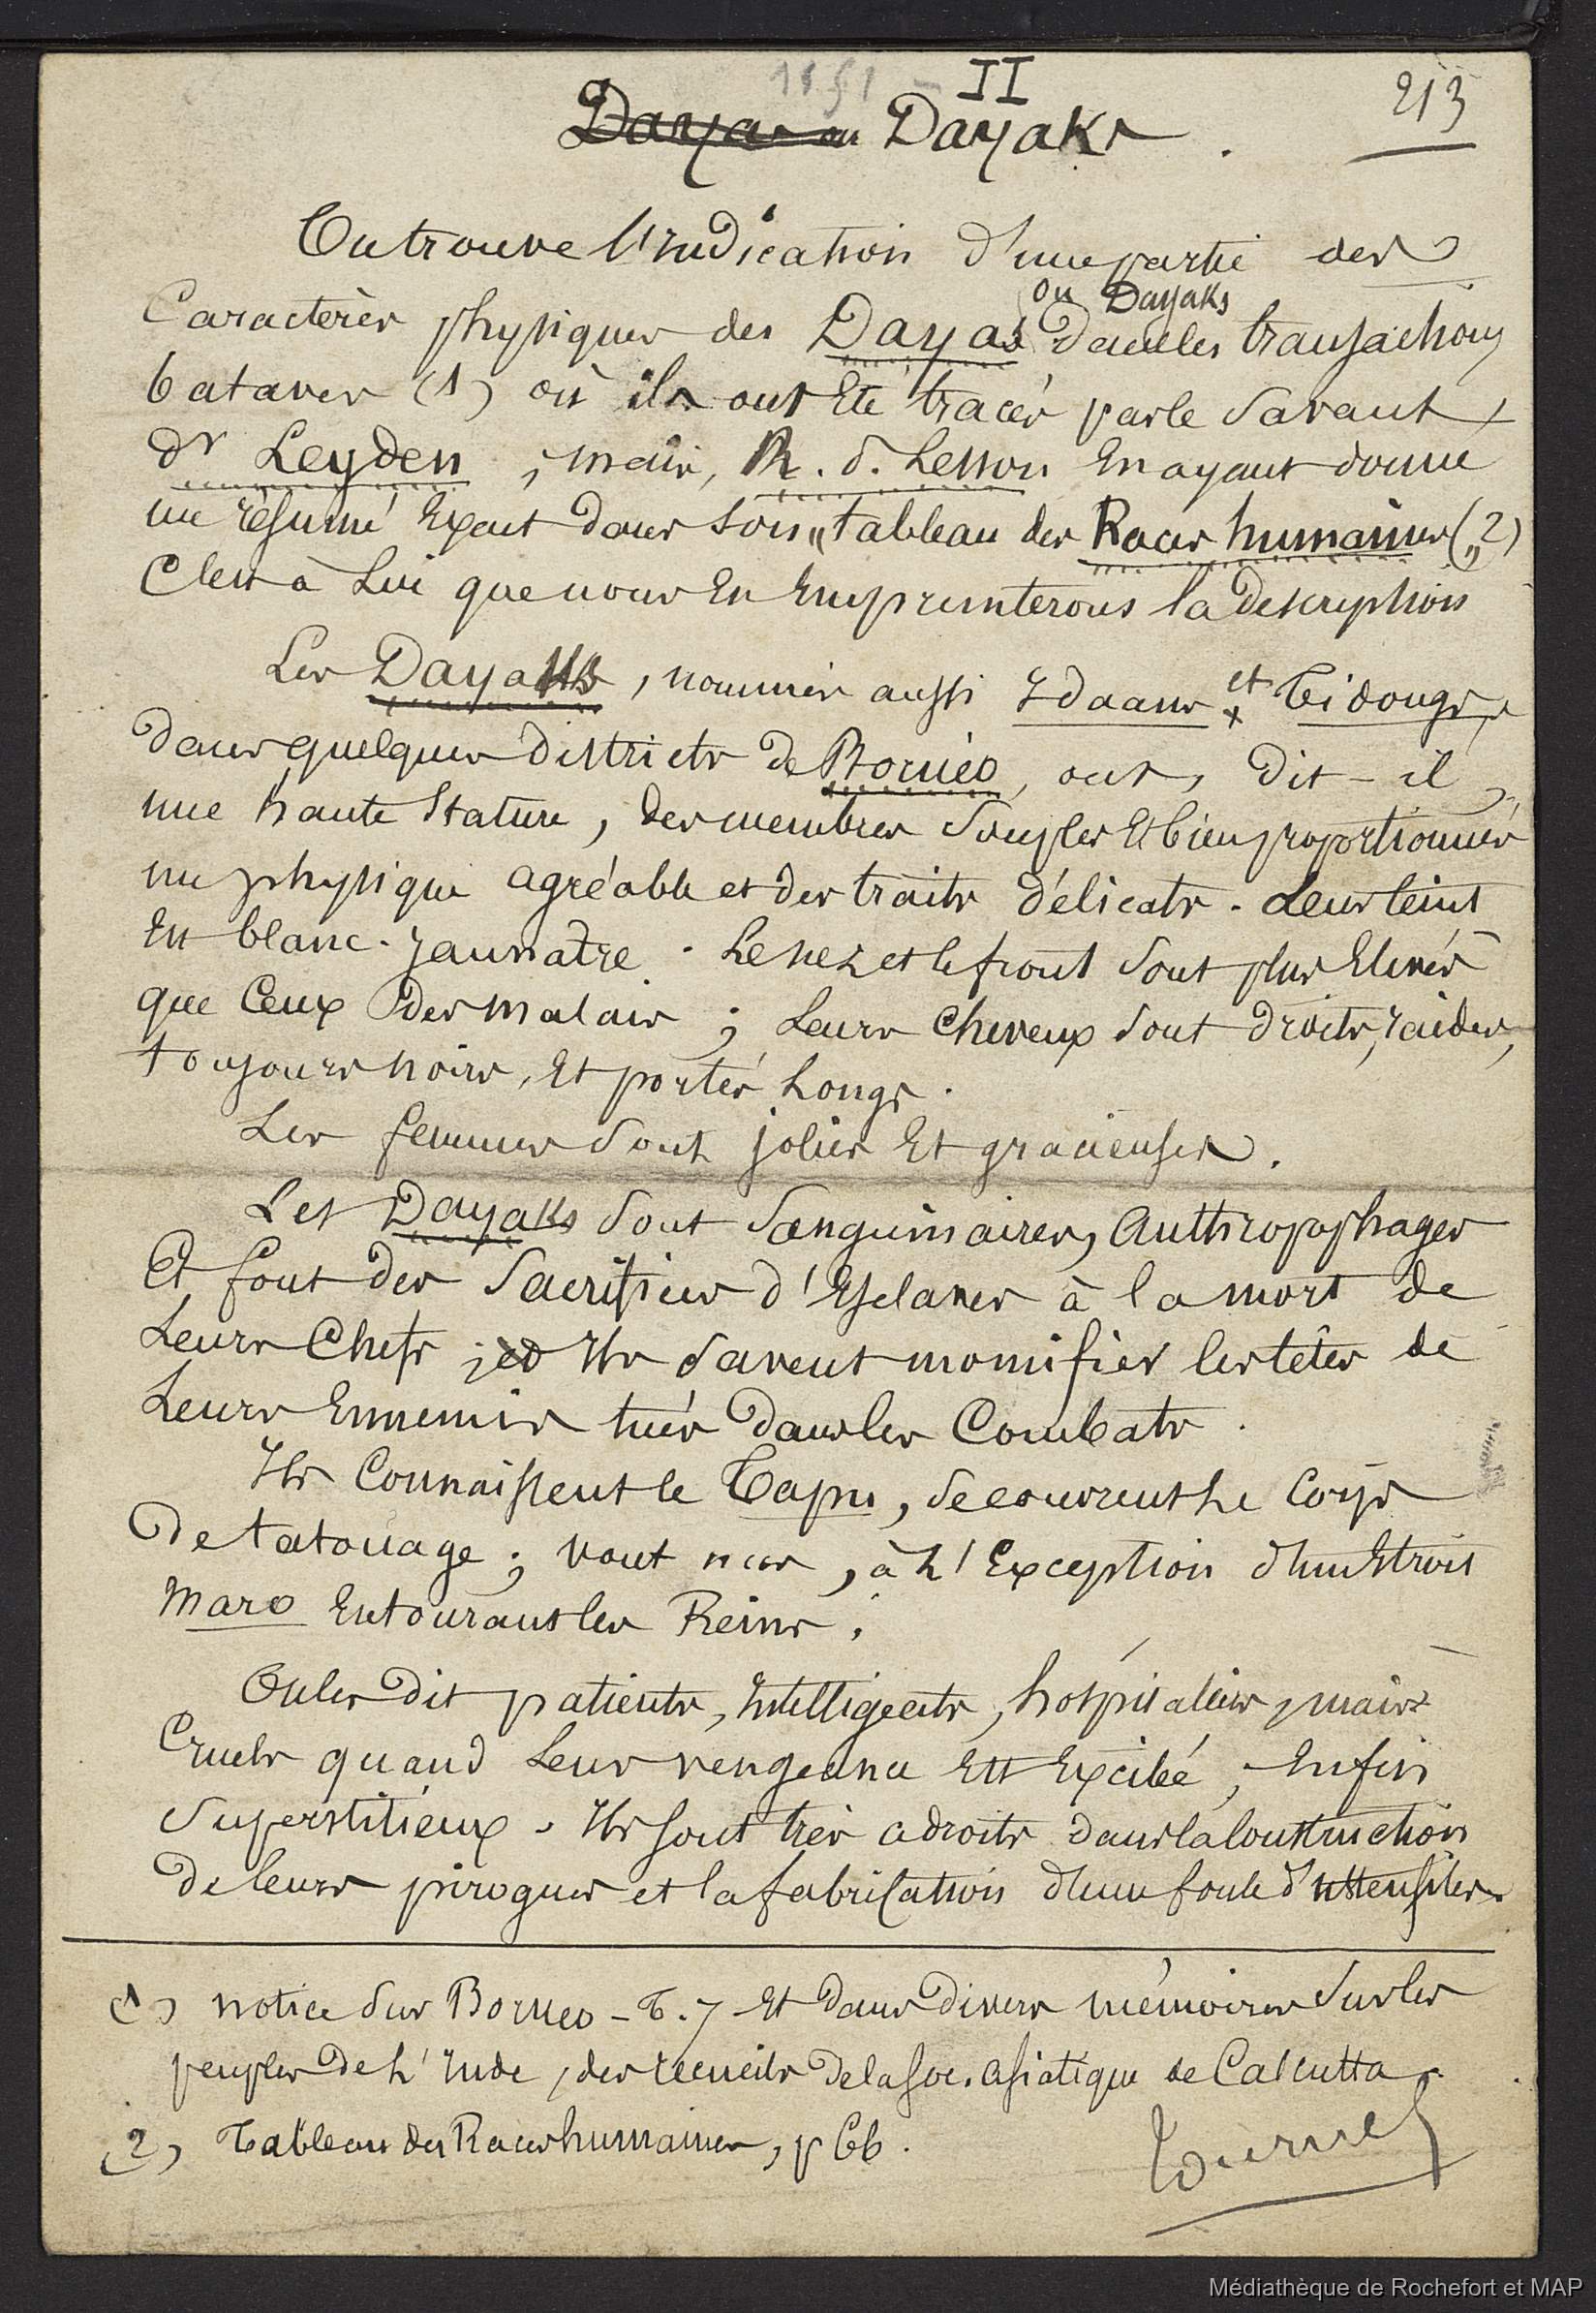 1151 - II
213
Dayas ou Dayaks.
On trouve l'indication d'une partie des
Caractères physiques des Dayas ou Dayaks dans les transactions
bataves (1) où ils ont été tracés par le savant
dr Leyden, mais, R. P. Lesson en ayant donné
un résumé exact dans son "tableau des Races humaines" (2)
C'est à lui que nous en emprunterons la description
Les Dayaks, nommés aussi Idaans et Tidougs,
dans quelques districts de Bornéo, ont, dit-il,
une haute stature, des membres souples et bien proportionnés
un physique agréable et des traits délicats. Leur teint
est blanc-jaunâtre. Le nez et le front sont plus élevés
que ceux des malais ; leurs cheveux sont droits, raides,
toujours noirs, et portés longs.
Les femmes sont jolies et gracieuses.
Les Dayaks sont sanguinaires, anthropophages
et font des sacrifices d'esclaves à la mort de
leurs chefs ; Ils savent momifier les têtes de
leurs ennemis tués dans les combats.
Ils connaissent le Tapu, se couvrent le corps
de tatouage ; vont nus, à l'exception d'un étroit
maro entourant les Reins.
On les dit patients, intelligents, hospitaliers, mais
Cruels quand leur vengeance est excitée, enfin
superstitieux. Ils sont très adroits dans la construction
de leurs pirogues et la fabrication d'une foule d'ustensiles
(1) notice sur Borneo - T. 7 - et dans divers mémoires sur les
peuples de l'Inde, des recueils de la soc. asiatique de Calcutta.
(2) Tableau des Races humaines, p 66.